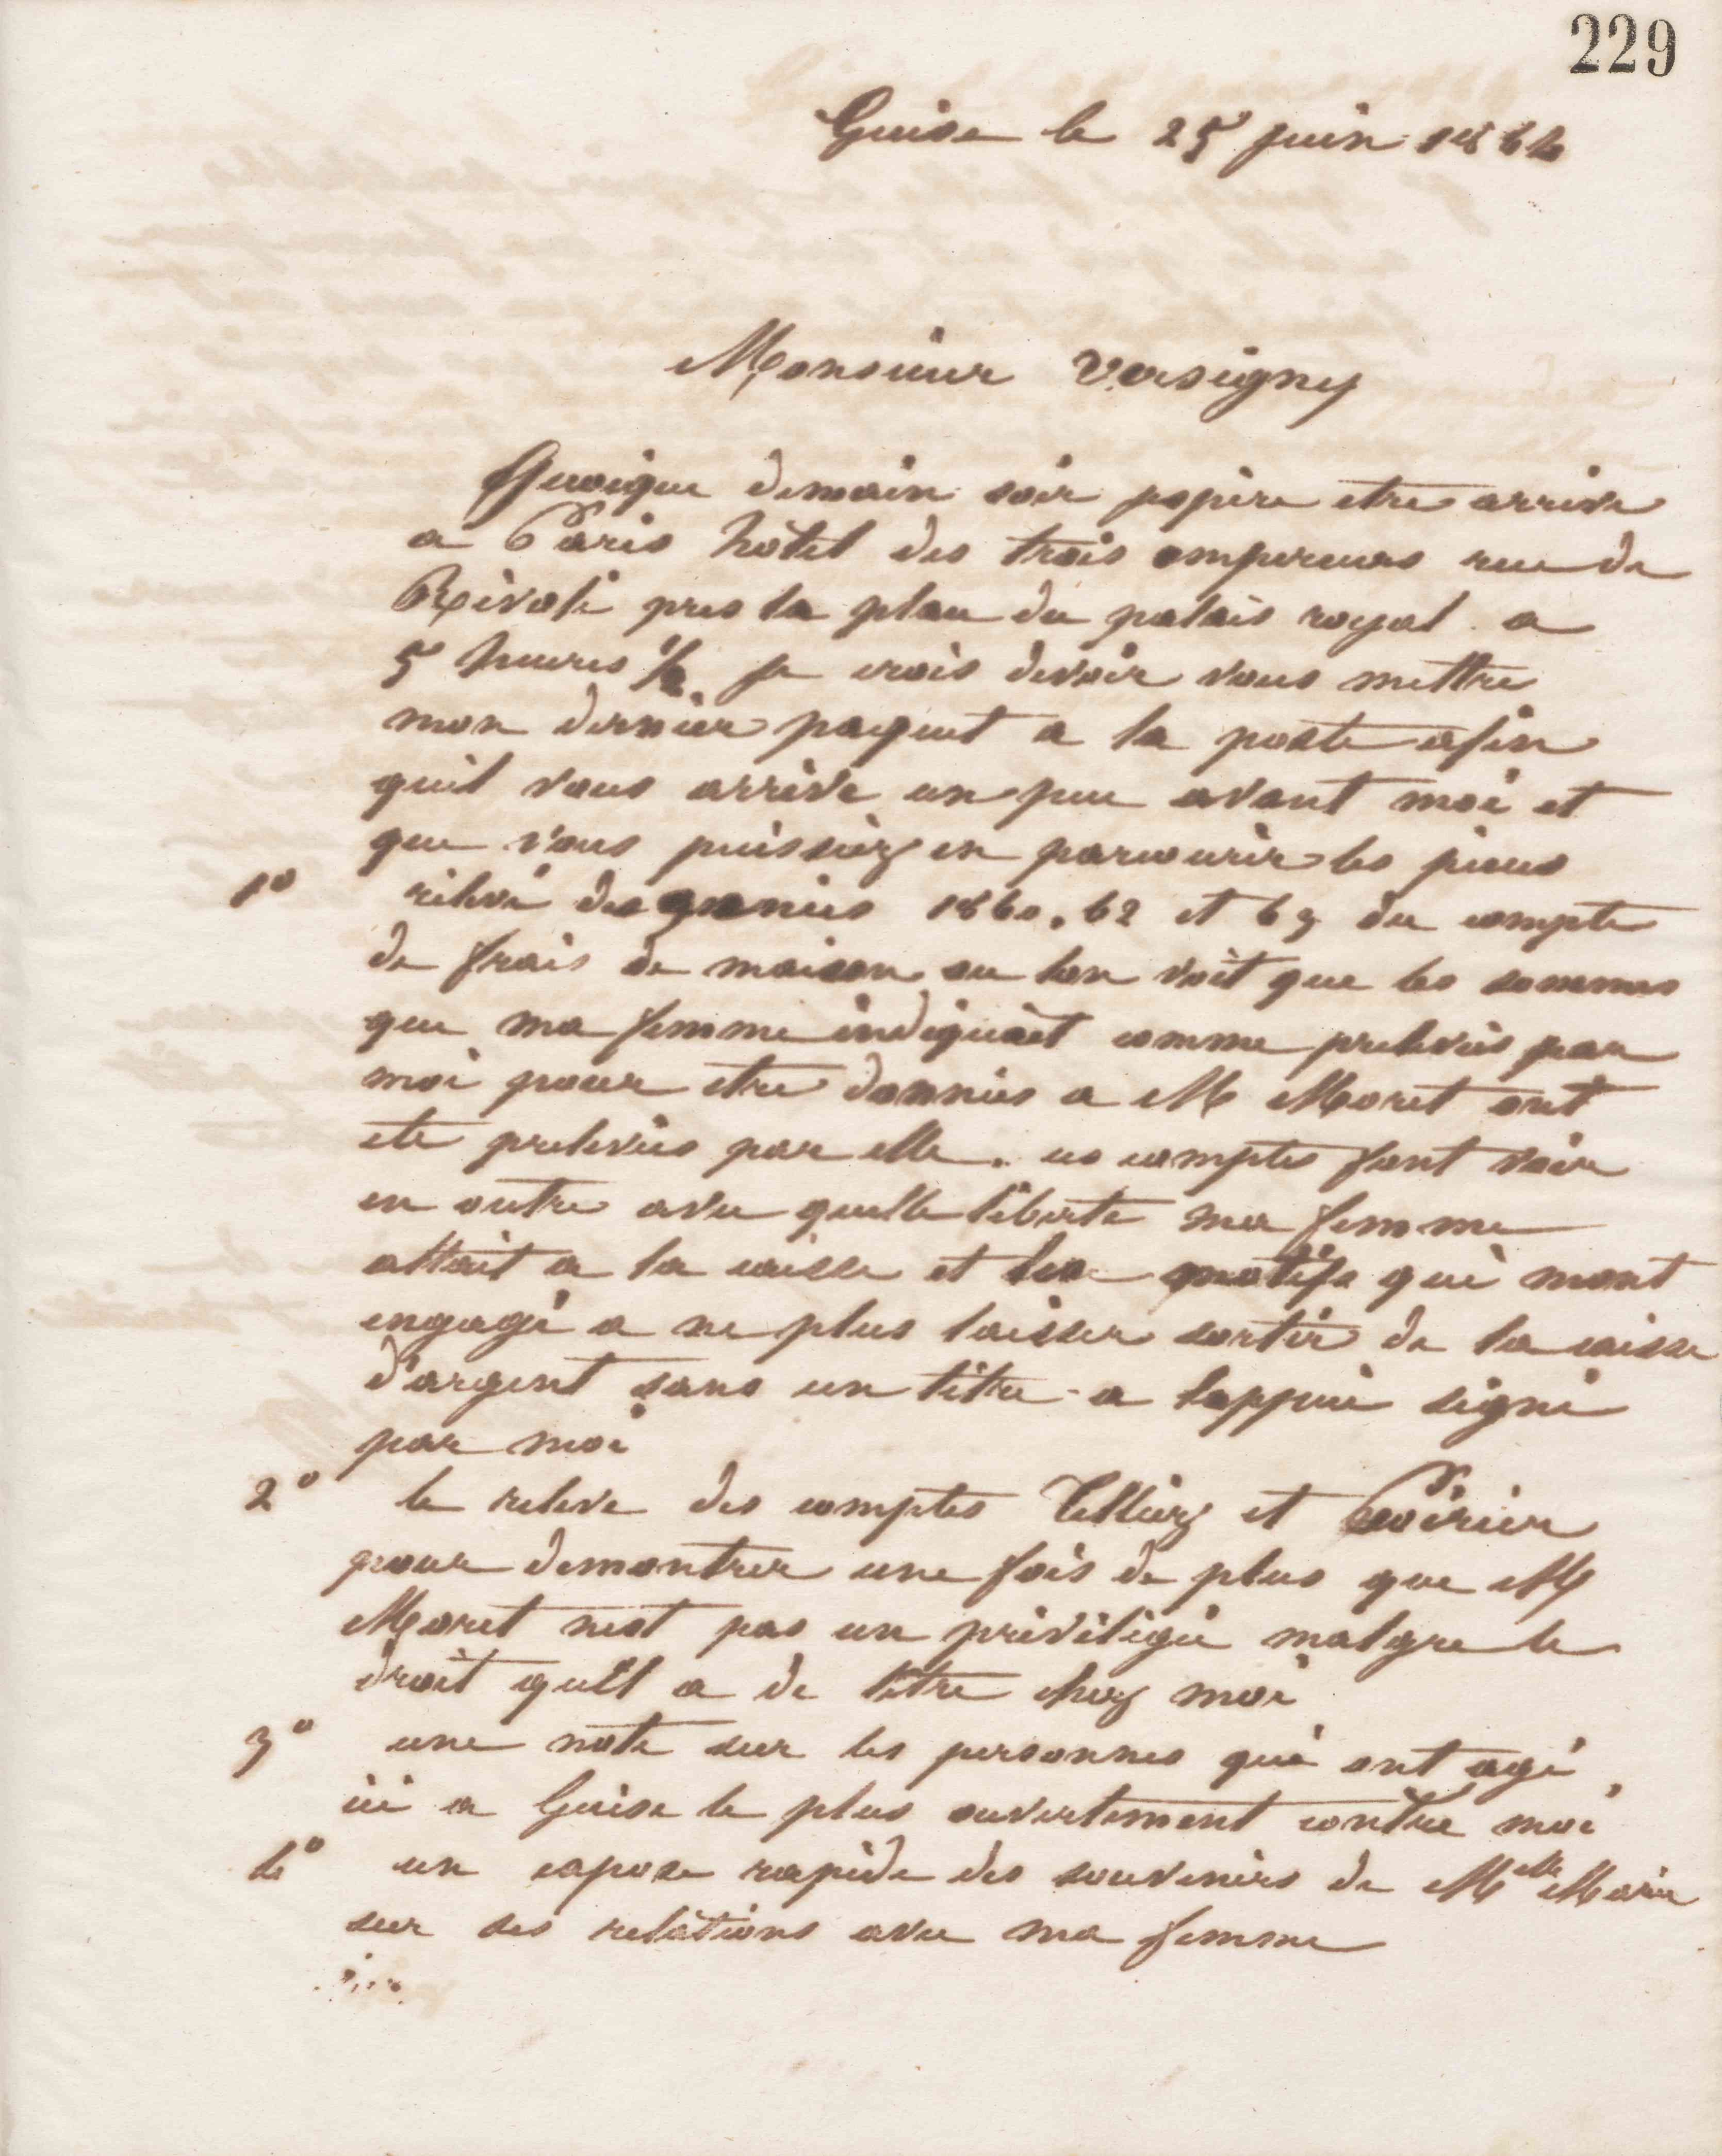 229
Guise le 25 juin 1864
Monsieur Versigny
Quoique demain soir jespère etre arrivé
a Paris hôtel des trois empereurs rue de
Rivoli pres la place du palais royal a
5 heures ½ je crois devoir vous mettre
mon dernier paquet a la poste afin
quil vous arrive un peu avant moi et
que vous puissiez en parcourir les pieces
1° relevé des années 1860, 62 et 63 du compte
de frais de maison ou lon voit que les sommes
que ma femme indiquait comme prelevées par
moi pour etre données a M Moret ont
ete prelevées par elle. ces comptes font voir
en outre avec quelle liberte ma femme
allait a la caisse et les motifs qui mont
engagé a ne plus laisser sortir de la caisse
d'argent sans un titre a lappui signé
par moi
2° le relevé des comptes Telliez et Poirier
pour demontrer une fois de plus que M
Moret nest pas un privilégié malgre le
droit quil a de letre chez moi
3° une note sur les personnes qui ont agi
ici a Guise le plus ouvertement contre moi
4° un exposé rapide des souvenirs de Melle Marie
sur ses relations avec ma femme